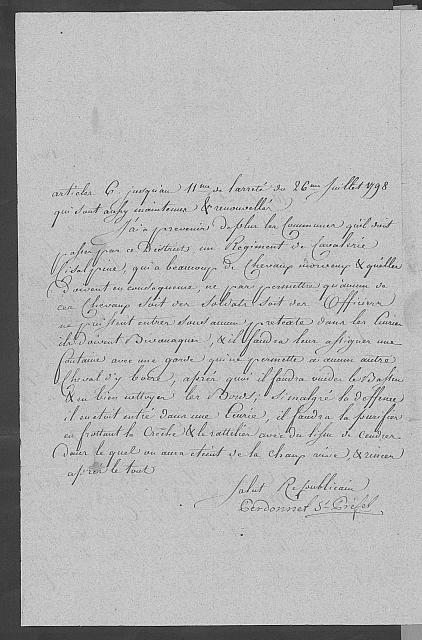 articles 6 jusqu'au 11me de l'arreté du 26me Juillet 1798
qui sont aussy maintenus & renouvellés
J'ai a prevenir de plus les Communes qu'il doit
passer par ce District un Regiment de Cavalerie
Cisalpine, qui a beaucoup de Chevaux morveux & qu'elles
doivent en consequence, ne pas permettre qu'aucun de
ces Chevaux soit des Soldats soit des Officiers
ne puissent entrer sous aucun pretexte dans les Ecuries
ils doivent Bivouaquer, & il faudra leur assigner une
fontaine avec une garde qui ne permette a aucun autre
Cheval d'y boire, après quoi il faudra vuider le Bassin
& en bien nettoyer les Bords; si malgré la deffense
il en etoit entré dans une Ecurie, il faudra la purifier
en frottant la Crêche & le rattelier avec du lissu de cendres
dans lequel on aura eteint de la chaux vive, & rincer
après le tout
Salut Republicain
Perdonnet Ss Préfet